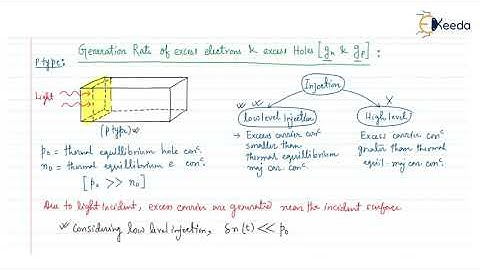 Ekeeda
Generation Rate of excess electrons & excess Holes [gn & gp] :
P type:
Light
(P type)
p₀ = thermal equilibrium hole conᶜ.
n₀ = thermal equilibrium e⁻ conᶜ.
[p₀ >> n₀]
Injection
Low level Injection
→ Excess carrier conᶜ
smaller than
thermal equilibrium
maj car. conᶜ.
High level
Excess carrier conᶜ
greater than thermal
equil. maj car. conᶜ.
Due to light incident, excess carrier are generated near the incident surface
Considering low level injection, δn(t) << p₀